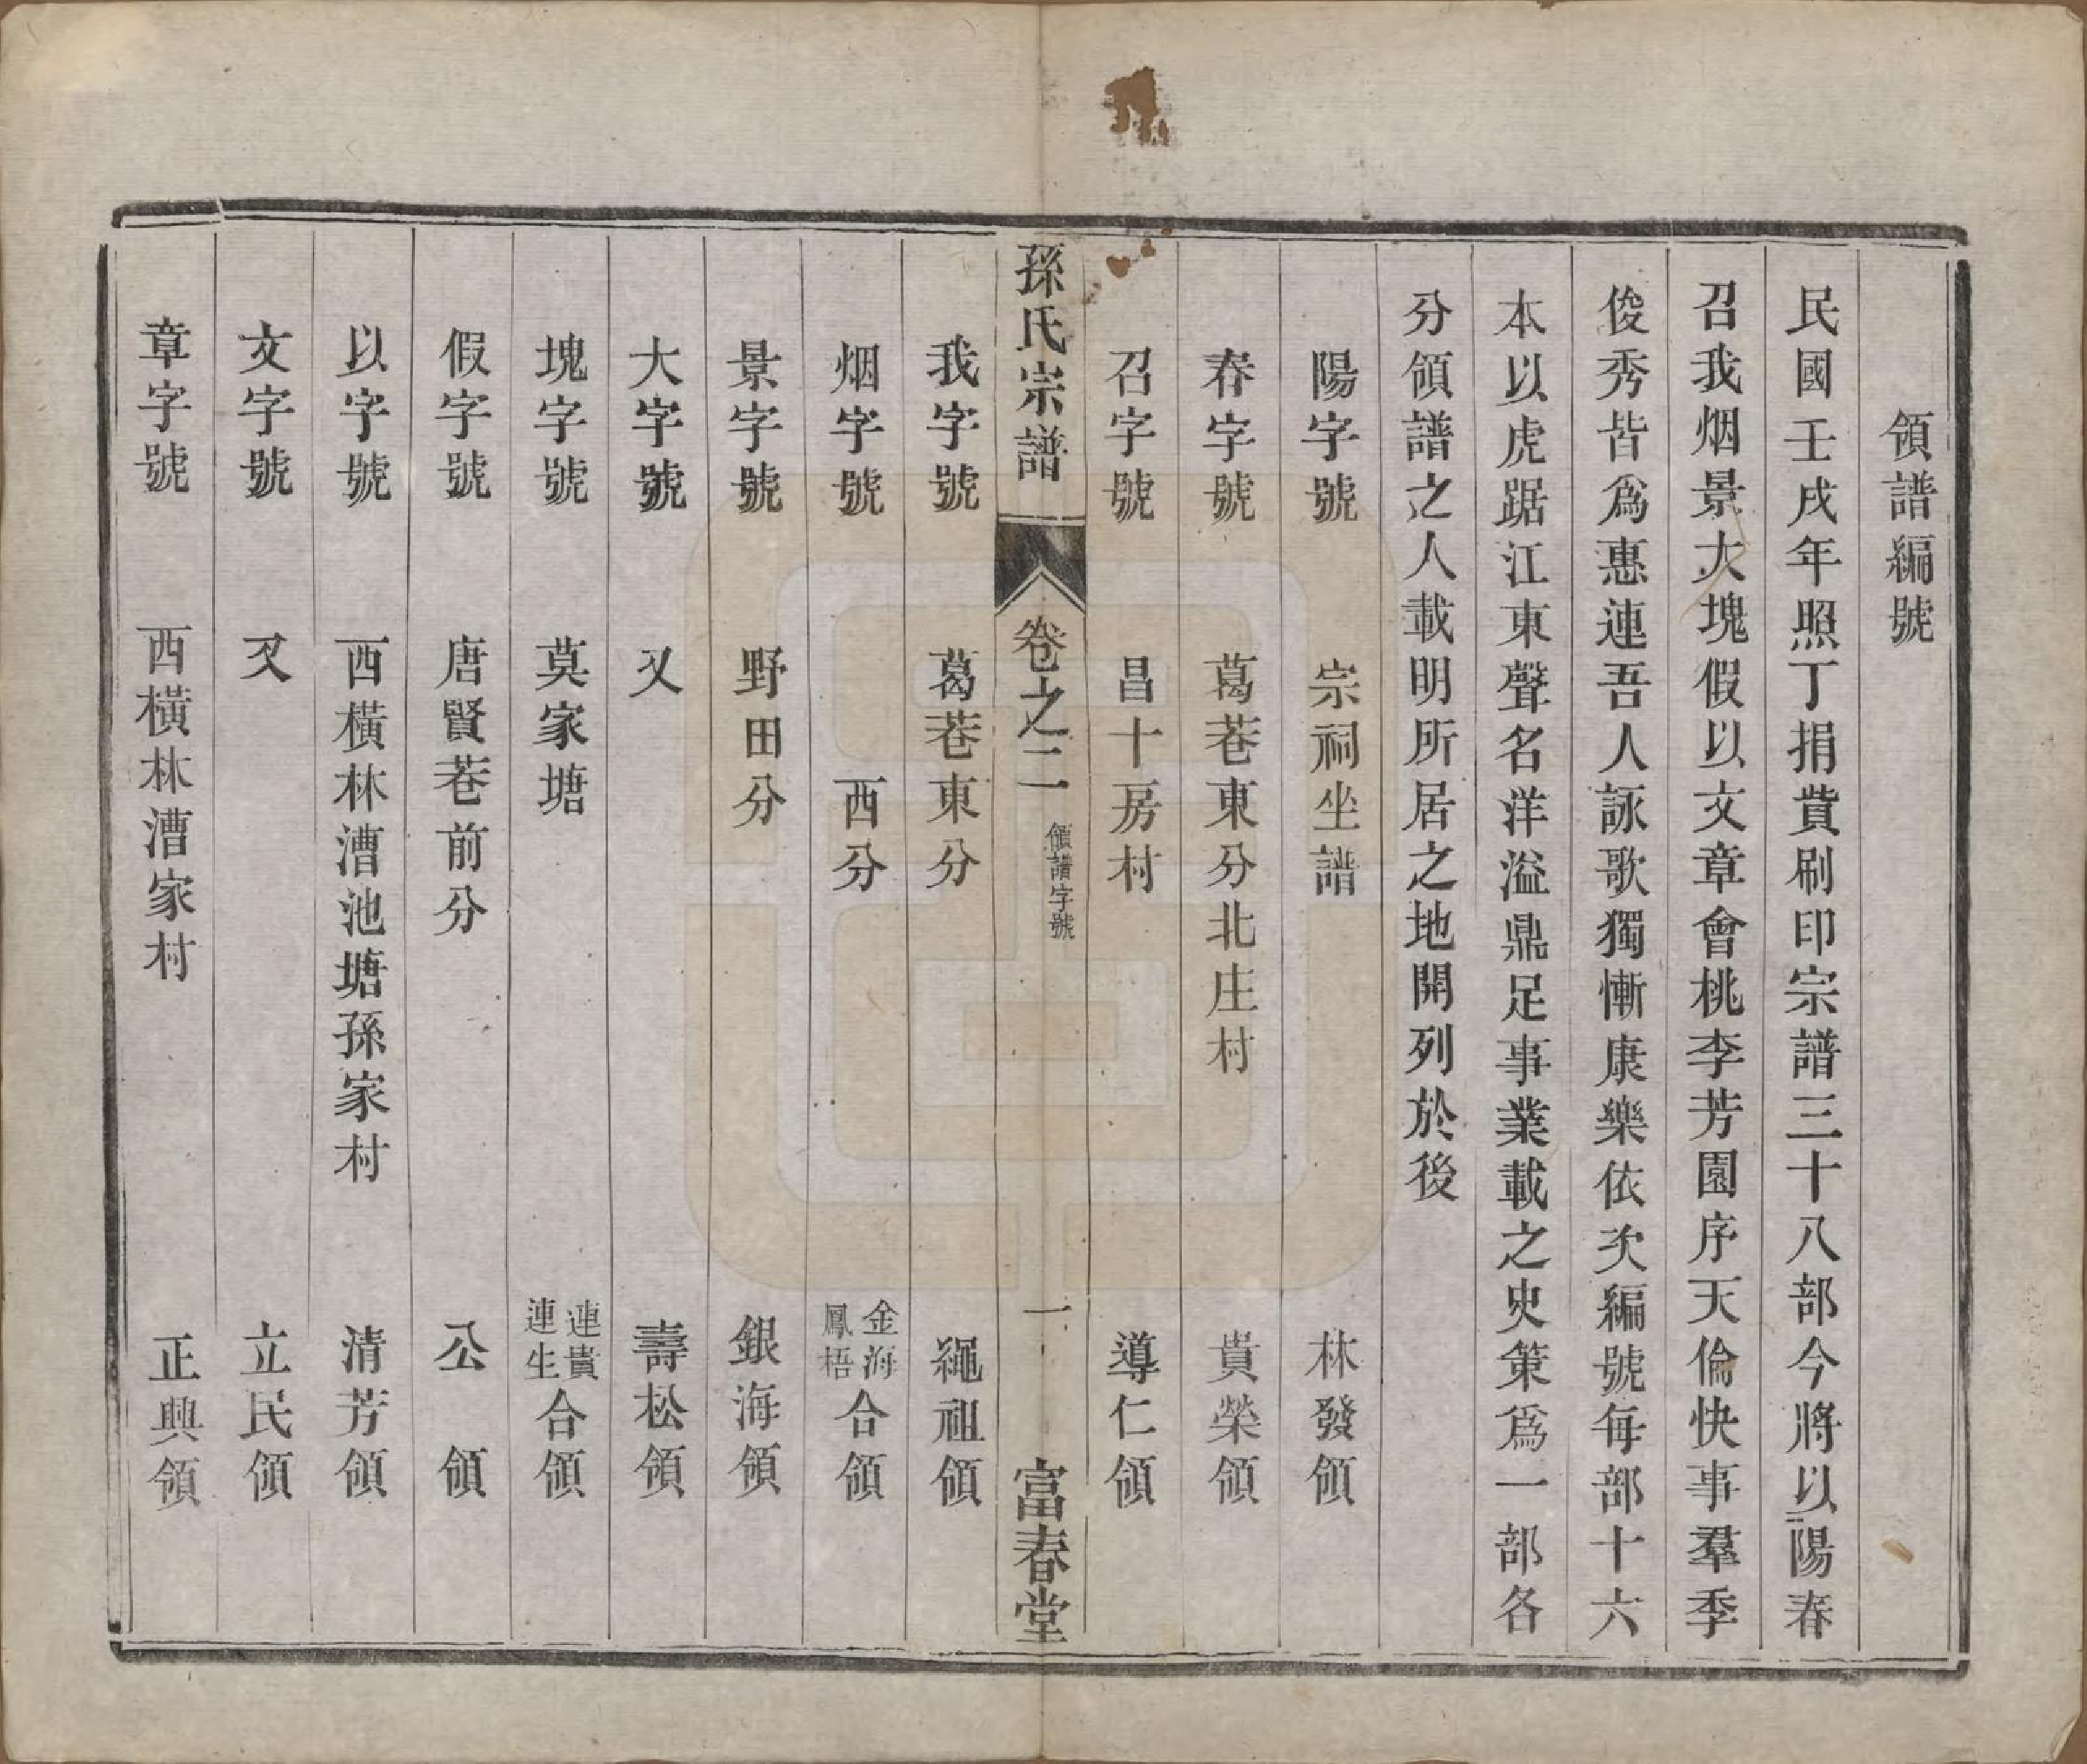 領譜編號
民國壬戌年照丁捐貲刷印宗譜三十八部今將以陽春
召我烟景大塊假以文章會桃李芳園序天倫快事羣季
俊秀皆為惠連吾人詠歌獨慚康樂依次編號每部十六
本以虎踞江東聲名洋溢鼎足事業載之史策為一部各
分領譜之人載明所居之地開列於後
陽字號 宗祠坐譜 林發領
春字號 葛巷東分北庄村 貴榮領
召字號 昌十房村 導仁領
孫氏宗譜 卷之二 領譜字號 一 富春堂
我字號 葛巷東分 繩祖領
烟字號 西分 金海鳳梧合領
景字號 野田分 銀海領
大字號 又 壽松領
塊字號 莫家塘 連貴連生合領
假字號 唐賢巷前分 公領
以字號 西橫林漕池塘孫家村 清芳領
文字號 又 立民領
章字號 西橫林漕家村 正興領